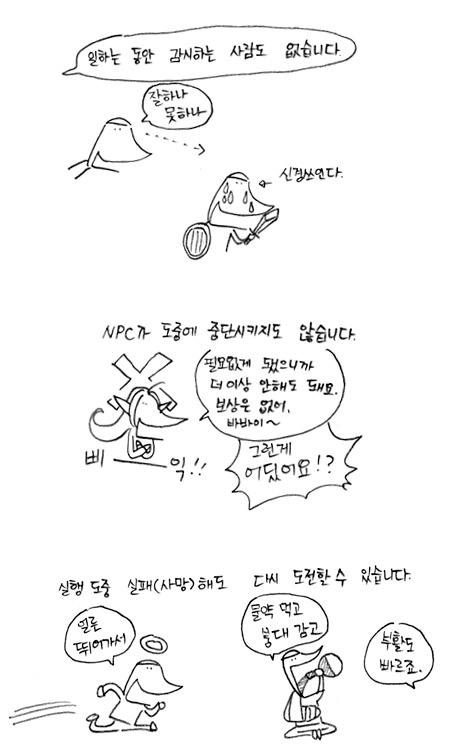 일하는 동안 감시하는 사람도 없습니다.
잘하나
못하나
신경쓰인다.
NPC가 도중에 중단시키지도 않습니다.
필요없게 됐으니까
더 이상 안해도 돼요.
보상은 없어.
바바이~
삐 익!!
그런게
어딨어요!?
실행 도중 실패(사망)해도 다시 도전할 수 있습니다.
얼른
뛰어가서
물약 먹고
붕대 감고
부활도
빠르죠.